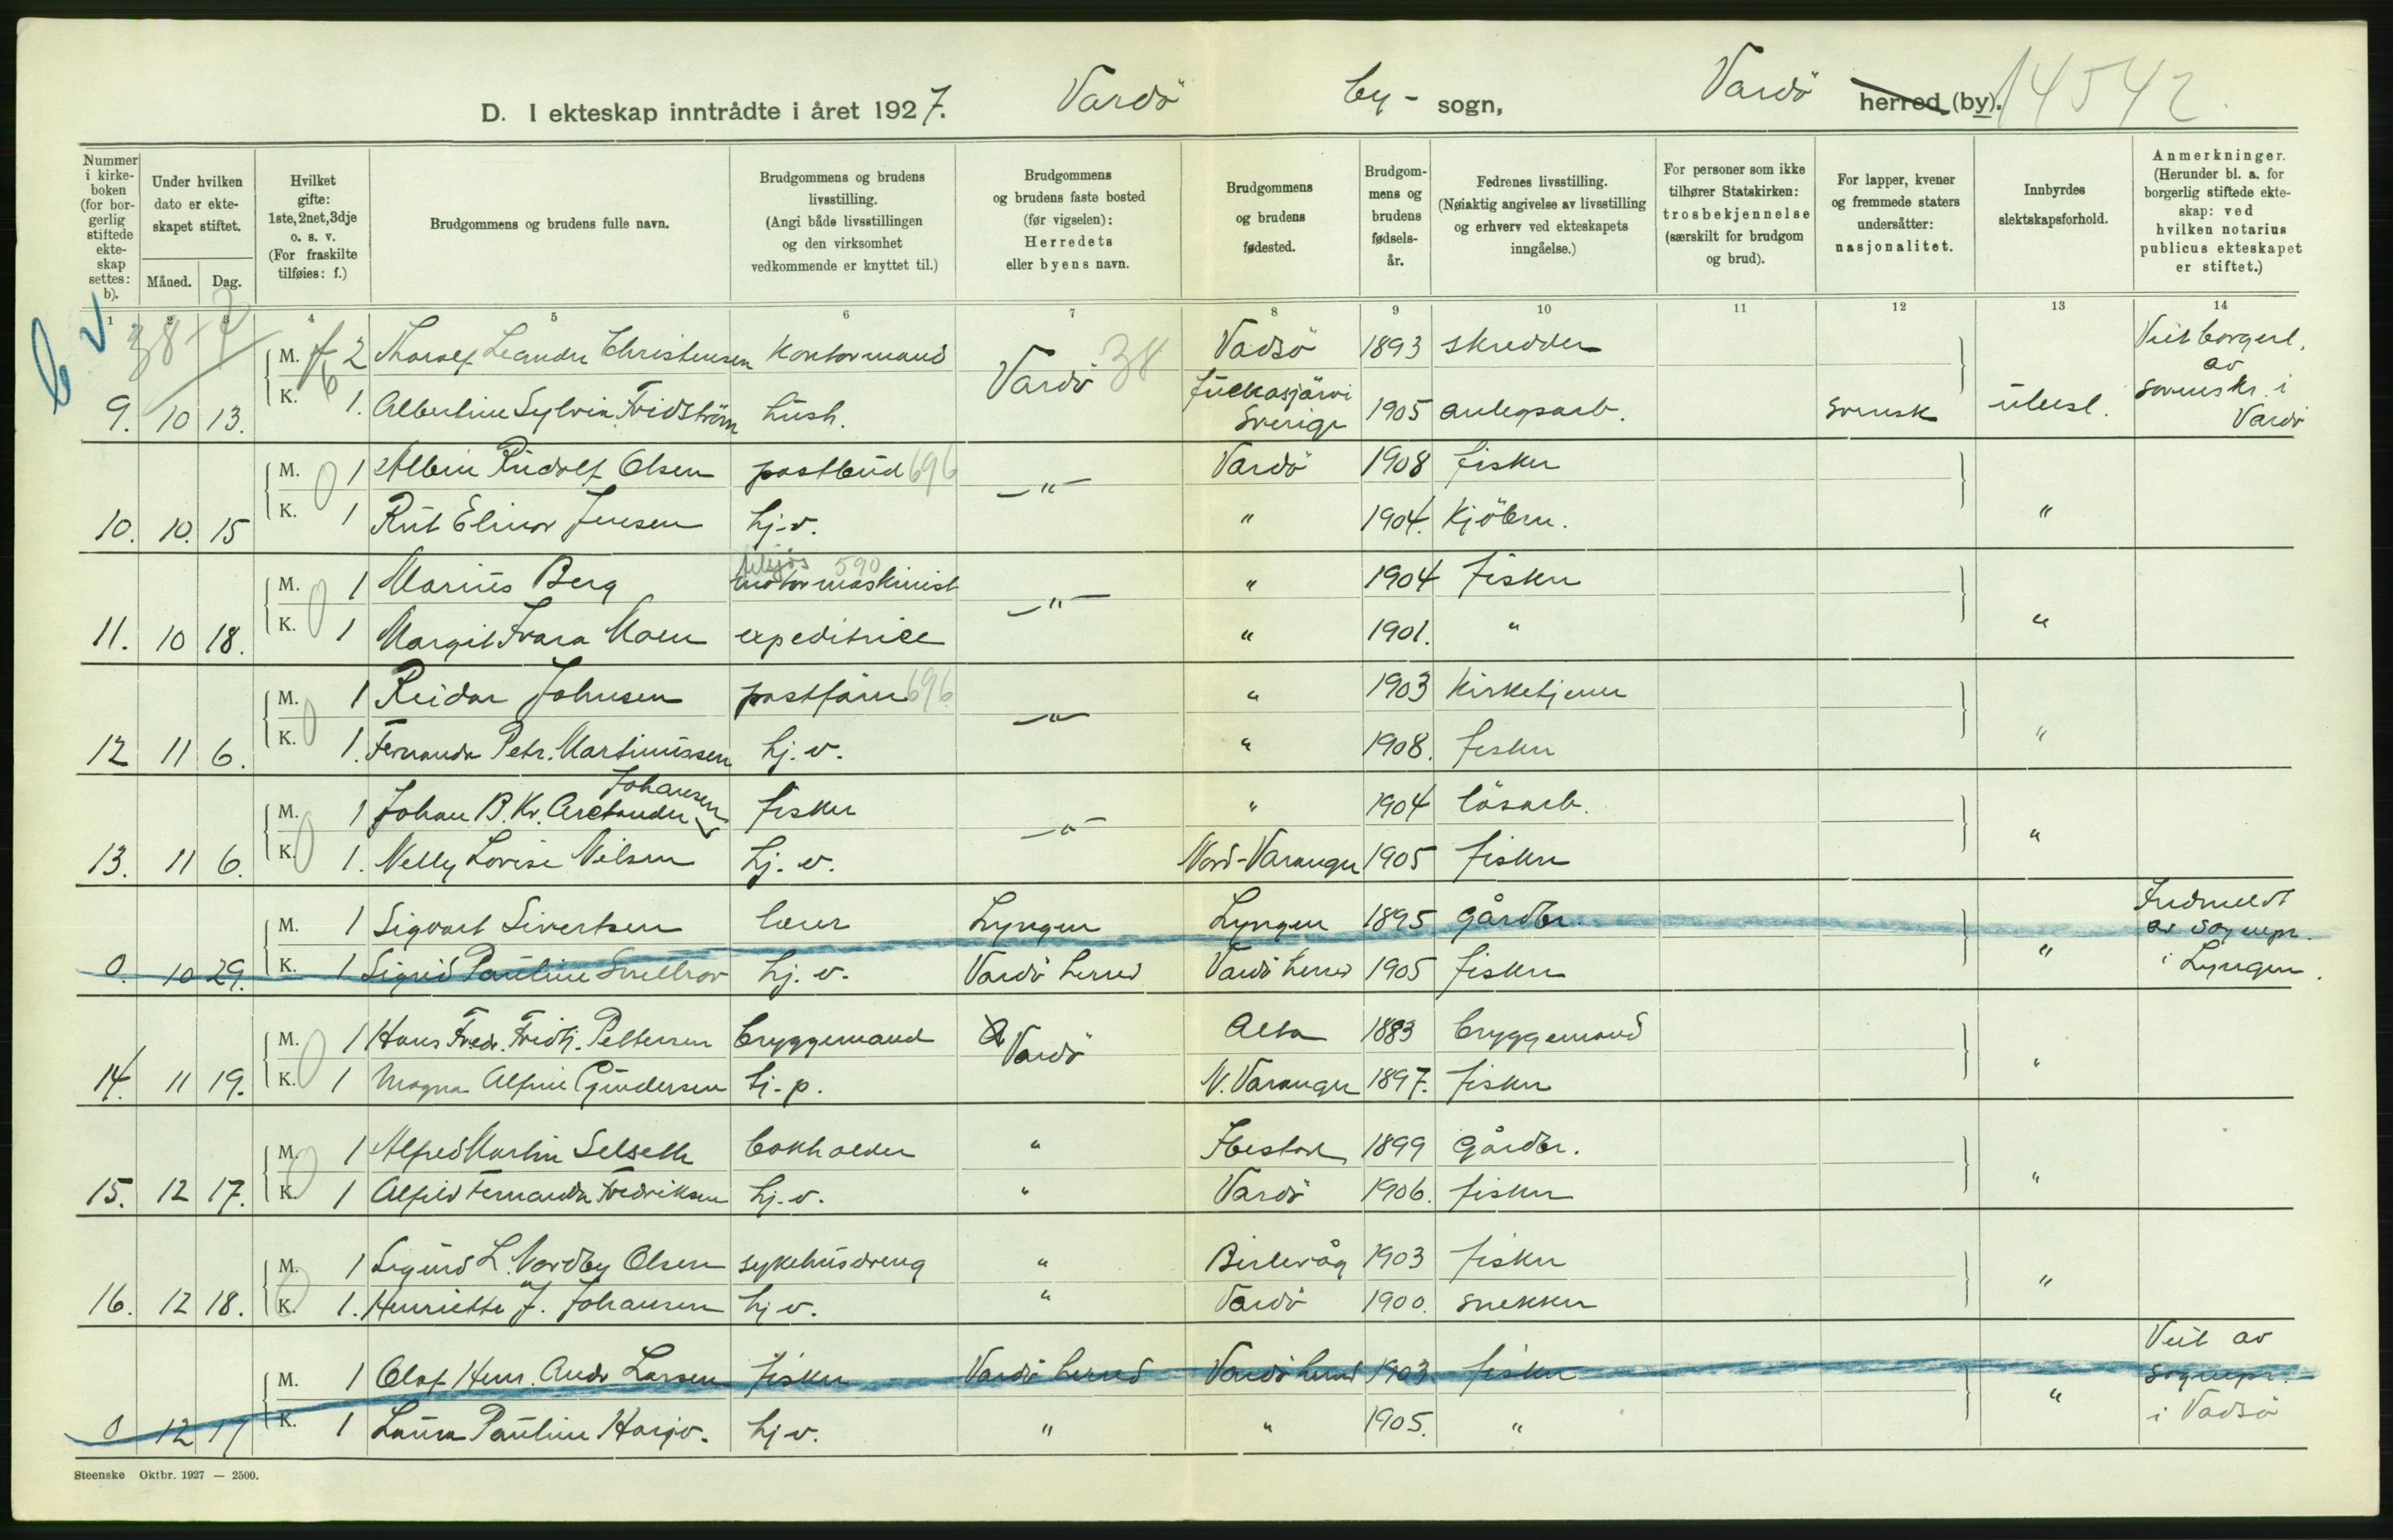 D. I ekteskap inntrådte i året 1927. Vardö by- sogn, Vardö herred (by). 14542.
Nummer i kirkeboken (for borgerlig stiftede ekteskap settes: b).
Under hvilken dato er ekteskapet stiftet.
Måned. Dag.
Hvilket gifte: 1ste, 2net, 3dje o. s. v. (For fraskilte tilføies: f.)
Brudgommens og brudens fulle navn.
Brudgommens og brudens livsstilling. (Angi både livsstillingen og den virksomhet vedkommende er knyttet til.)
Brudgommens og brudens faste bosted (før vigselen): Herredets eller byens navn.
Brudgommens og brudens fødested.
Brudgommens og brudens fødselsår.
Fedrenes livsstilling. (Nøiaktig angivelse av livsstilling og erhverv ved ekteskapets inngåelse.)
For personer som ikke tilhører Statskirken: trosbekjennelse (særskilt for brudgom og brud).
For lapper, kvener og fremmede staters undersåtter: nasjonalitet.
Innbyrdes slektskapsforhold.
Anmerkninger. (Herunder bl. a. for borgerlig stiftede ekteskap: ved hvilken notarius publicus ekteskapet er stiftet.)
1 2 3 4 5 6 7 8 9 10 11 12 13 14
b v 38
M. f 2 Thoralf Leander Christensen kontormand Vardö 38 Vadsö 1893 skredder Viet borgerl. av sorenskr. i Vardö
9. 10 13. K. 1. Albertine Sylvia Fridström hush. Juckasjärvi Sverige 1905 anlegsarb. svensk ubesl.
M. 0 1 Albin Rudolf Olsen postbud 696 —"— Vardö 1908 fisker
10. 10. 15 K. 1 Rut Elinor Jensen hj.v. " 1904. kjöbm. "
M. 0 1 Marius Berg motormaskinist 590 —"— " 1904 fisker
11. 10 18. K. 1 Margit Svara Moen expeditrice " 1901. " "
M. 0 1 Reidar Johnsen postfäm 696 —"— " 1903 kirketjener
12 11 6. K. 1. Fernanda Petr. Martinussen hj.v. " 1908. fisker "
M. 0 1 Johan B. Kr. Arctander Johansen fisker —"— " 1904 lösarb.
13. 11 6. K. 1. Nelly Lovise Nilsen hj.v. Nord-Varanger 1905 fisker "
M. 1 Sigvart Sivertsen lærer Lyngen Lyngen 1895 gårdbr. Indmeldt av sognepr. i Lyngen.
0. 10 29. K. 1 Sigrid Pauline Smelror hj.v. Vardö herred Vardö herred 1905 fisker "
M. 0 1 Hans Fredr. Fridtj. Pettersen bryggemand Vardö Alta 1883 bryggemand
14. 11 19. K. 1 Magna Alfine Gundersen hj.p. N. Varanger 1897. fisker "
M. 0 1 Alfred Martin Selseth bokholder " Ibestad 1899 gårdbr.
15. 12 17. K. 1 Alfild Fernanda Fredriksen hj.v. " Vardö 1906. fisker "
M. 0 1 Sigurd L. Nordby Olsen sykehusdreng " Berlevåg 1903 fisker
16. 12 18. K. 1. Henriette J. Johansen hj.v. " Vardö 1900. snekker "
M. 1 Olaf Henr. Andr. Larsen fisker Vardö herred Vardö herred 1903 fisker Viet av sognepr. i Vadsö
0 12 17 K. 1 Laura Pauline Harjo. hj.v. " " 1905. " "
Steenske Oktbr. 1927 — 2500.